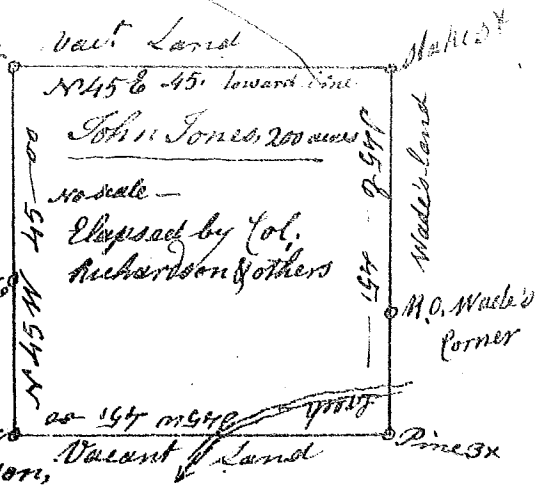 Vact Land
Stake 3x
N45 E 45. toward line
John Jones, 200 acres
No scale —
Elapsed by Col.
Richardson & others
N45W 45 — 00
S45 E 45 —
Wade's land
M.O. Wade's
Corner
S45W 45. 00
Vacant Land
Pine 3x
on,